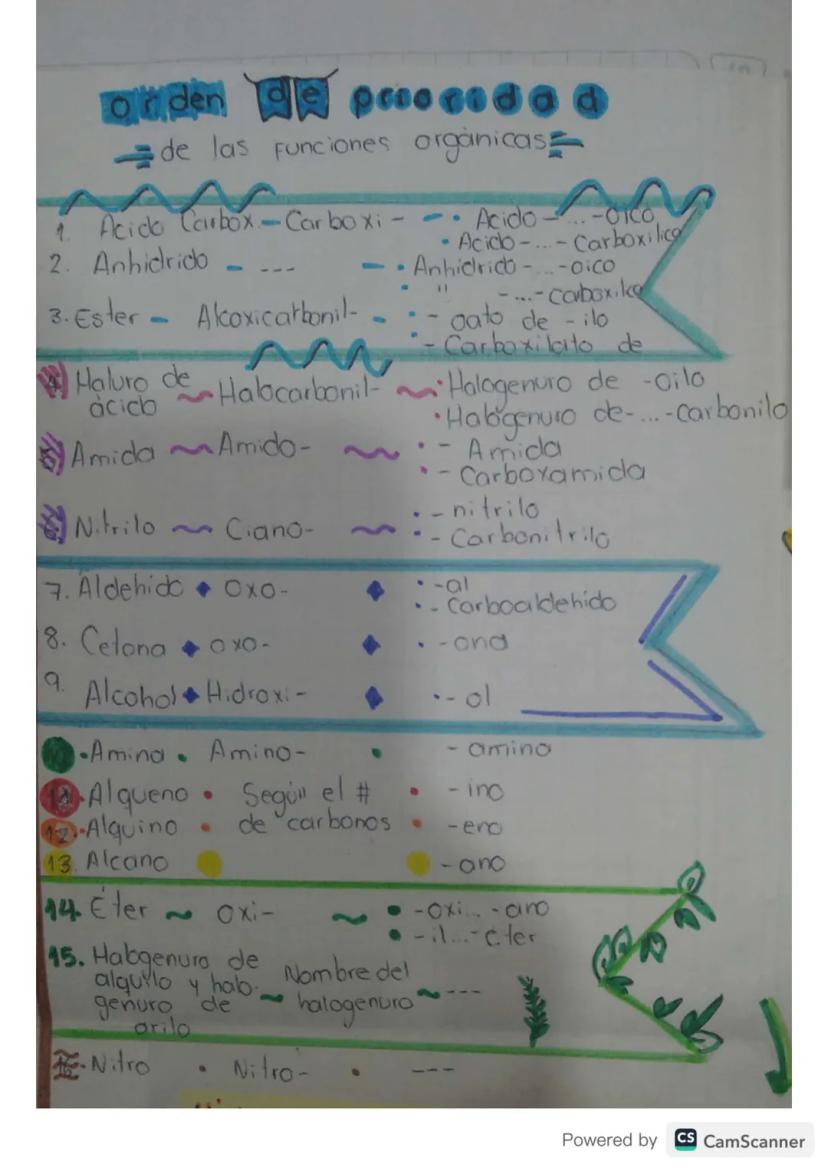 orden de prioridad
de las funciones orgánicas
1. Acido Carbox. - Carboxi - - • Acido - ... -oico
• Acido - ... - Carboxilico
2. Anhidrido - --- - • Anhidrido - ... -oico
• " - ... - carboxilico
3. Ester - Alcoxicarbonil- - • - oato de - ilo
• - Carboxilato de
4) Haluro de ácido ~ Halocarbonil- ~ • Halogenuro de -oilo
• Halogenuro de- ... -carbonilo
5) Amida ~ Amido- ~ • - Amida
• - Carboxamida
6) Nitrilo ~ Ciano- ~ • - nitrilo
• - Carbonitrilo
7. Aldehido ◆ oxo- ◆ • -al
• - Carboaldehido
8. Cetona ◆ oxo- ◆ • - ona
9. Alcohol ◆ Hidroxi- ◆ • - ol
• Amina • Amino- • - amino
11. • Alqueno • Según el # • - ino
12. • Alquino • de carbonos • -eno
13. Alcano - ano
14. Éter ~ oxi- ~ • -oxi... -ano
• -il...-éter
15. Halogenuro de
alquilo y halo- Nombre del
genuro de ~ halogenuro ~ ---
arilo
16. Nitro • Nitro- • ---
Powered by CS CamScanner